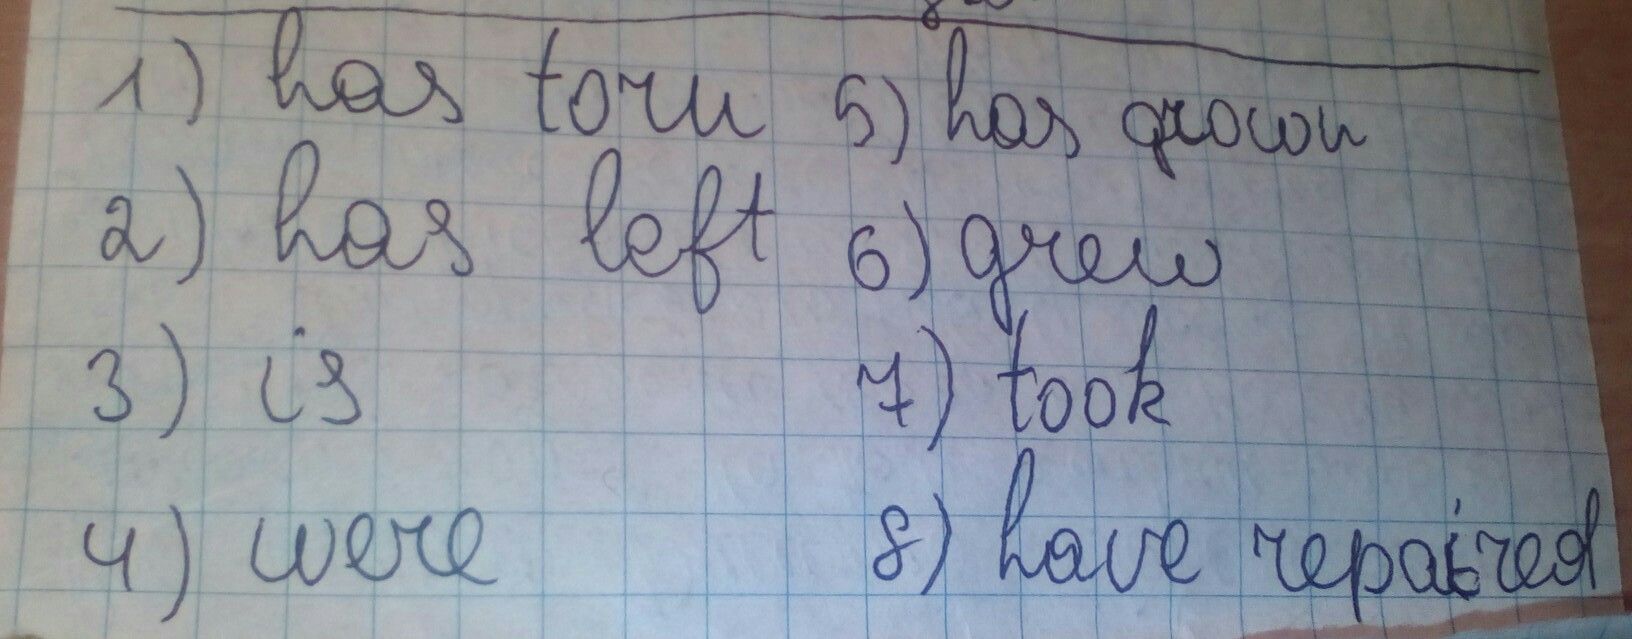 1) has torn
2) has left
3) is
4) were
5) has grown
6) grew
7) took
8) have repaired